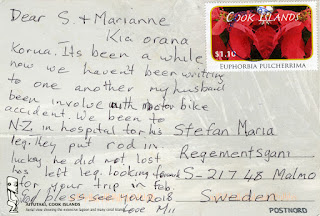 Dear S. & Marianne
Kia orana
Korua. Its been a while
now we haven't been writing
to one another my husband
been involve with motor bike
accident. We been to
NZ in hospital for his
leg. They put rod in
lucky he did not lost
his left leg. looking forward
for your trip in Feb
God bless see you 2018
Love
COOK ISLANDS
$1.10
EUPHORBIA PULCHERRIMA
Stefan Maria
S-217 48 Malmo
Sweden
AITUTAKI, COOK ISLANDS
Aerial view showing the extensive lagoon and many coral islands
POSTNORD